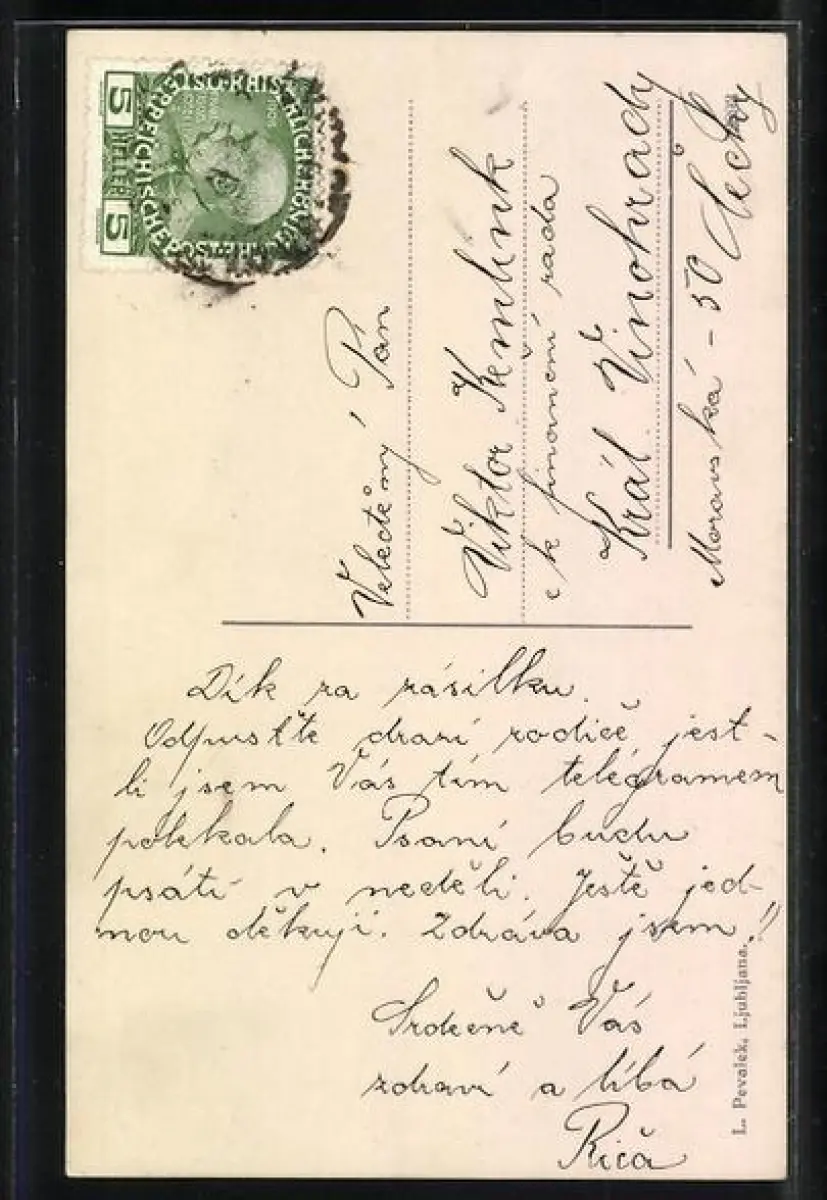 5 HELLER 5
Velectěný Pán
Viktor Kemlink
c k finanční rada
Král Vinohrady
Moravská - 50 Čechy
Dík za zásilku.
Odpusťte drazí rodiče jest-
li jsem Vás tím telégramem
polekala. Psaní budu
psáti v neděli. Ještě jed-
nou děkuji. Zdráva jsem!!
Srdečně Vás
zdraví a líbá
Riča
L. Pevalek, Ljubljana.